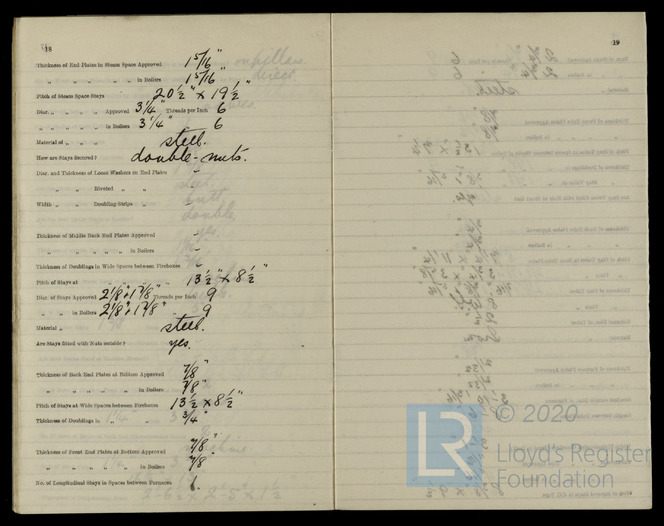 18
Thickness of End Plates in Steam Space Approved 1 5/16"
" " " " " in Boilers 1 5/16"
Pitch of Steam Space Stays 20 1/2" x 19 1/2"
Diar. " " " " Approved 3 1/4" Threads per Inch 6
" " " " in Boilers 3 1/4" " 6
Material of " " " steel.
How are Stays Secured? double-nuts.
Diar. and Thickness of Loose Washers on End Plates –
" " Riveted " " –
Width " " Doubling Strips " –
Thickness of Middle Back End Plates Approved –
" " " " in Boilers –
Thickness of Doublings in Wide Spaces between Fireboxes –
Pitch of Stays at " " " " 13 1/2" x 8 1/2"
Diar. of Stays Approved 2 1/8" & 1 7/8" Threads per Inch 9
" " in Boilers 2 1/8" & 1 7/8" " 9
Material " steel.
Are Stays fitted with Nuts outside? yes.
Thickness of Back End Plates at Bottom Approved 7/8"
" " " " in Boilers 7/8"
Pitch of Stays at Wide Spaces between Fireboxes 13 1/2" x 8 1/2"
Thickness of Doublings in " " 3/4"
Thickness of Front End Plates at Bottom Approved 7/8"
" " " " in Boilers 7/8"
No. of Longitudinal Stays in Spaces between Furnaces
19
© 2020
LR
Lloyd's Register
Foundation